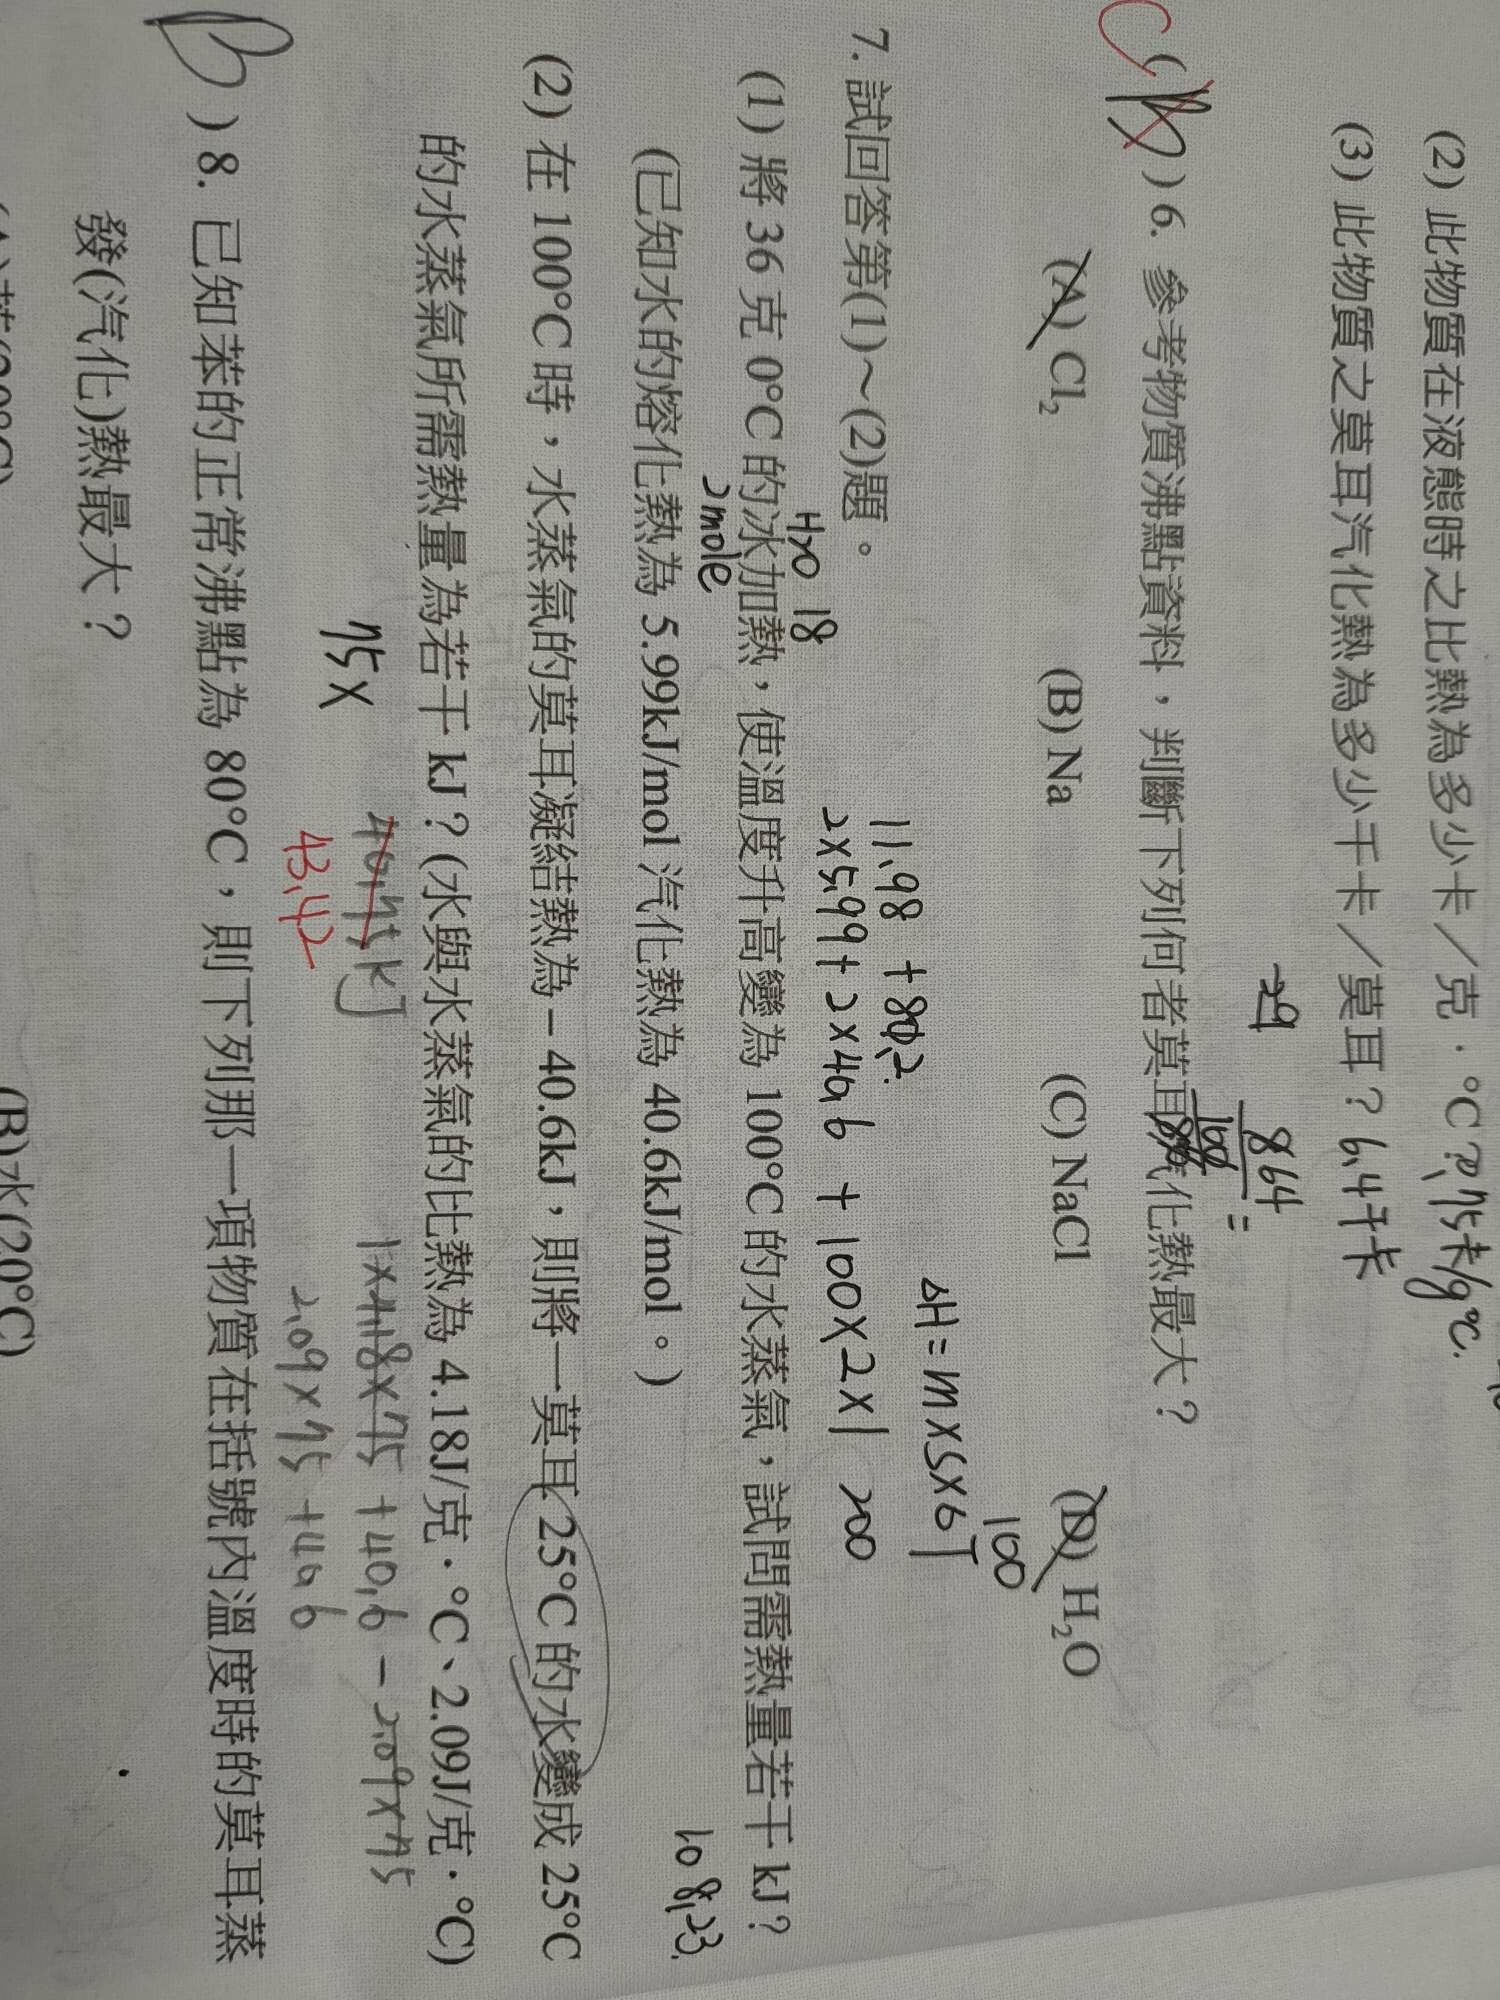 (2) 此物質在液態時之比熱為多少卡／克．°C？0.75卡/g°C.
(3) 此物質之莫耳汽化熱為多少千卡／莫耳？6.4千卡
864
100
=
C
(B) 6. 參考物質沸點資料，判斷下列何者莫耳汽化熱最大？
(A) Cl₂ (B) Na (C) NaCl (D) H₂O
100
ΔH = m×s×6T
11.98 + 80.2
2×5.99 + 2×40.6 + 100×2×1 200
7. 試回答第(1)～(2)題。
H₂O 18
(1) 將 36 克 0°C 的冰加熱，使溫度升高變為 100°C 的水蒸氣，試問需熱量若干 kJ？
2mole
108.23
(已知水的熔化熱為 5.99kJ/mol 汽化熱為 40.6kJ/mol。)
(2) 在 100°C 時，水蒸氣的莫耳凝結熱為－40.6kJ，則將一莫耳 25°C 的水變成 25°C
的水蒸氣所需熱量為若干 kJ？(水與水蒸氣的比熱為 4.18J/克．°C、2.09J/克．°C)
75× 1×4.18×75 + 40.6 - 2.09×75
43.42 2.09×75 + 40.6
B ) 8. 已知苯的正常沸點為 80°C，則下列那一項物質在括號內溫度時的莫耳蒸
發(汽化)熱最大？
(B)水(20°C)